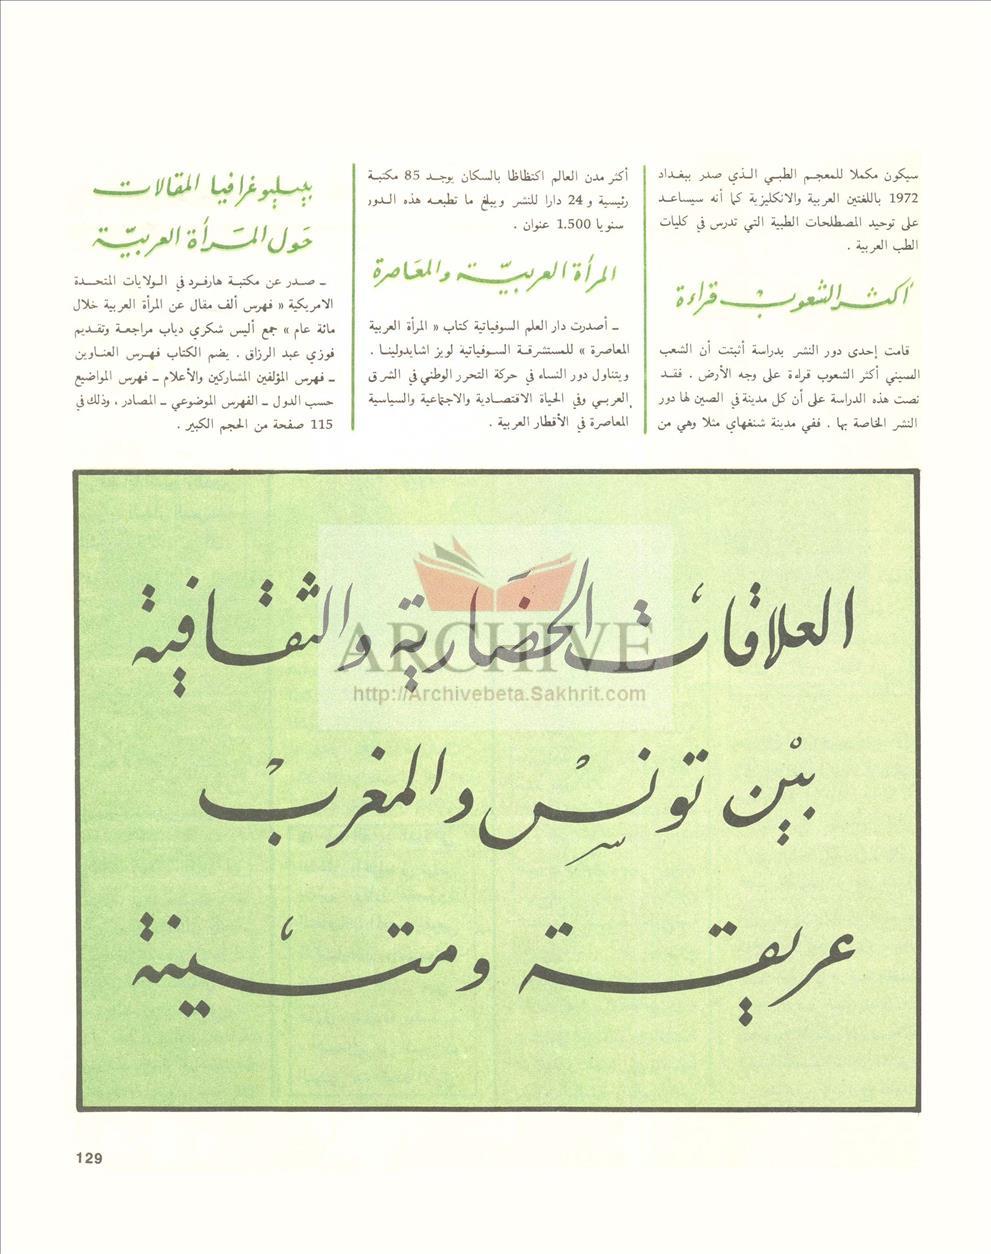 سيكون مكملا للمعجم الطبي الذي صدر ببغداد
1972 باللغتين العربية والانكليزية كما أنه سيساعد
على توحيد المصطلحات الطبية التي تدرس في كليات
الطب العربية .
أكثر الشعوب قراءة
قامت إحدى دور النشر بدراسة أثبتت أن الشعب
السيني أكثر الشعوب قراءة على وجه الأرض . فقد
نصت هذه الدراسة على أن كل مدينة في الصين لها دور
النشر الخاصة بها . ففي مدينة شنغهاي مثلا وهي من
أكثر مدن العالم اكتظاظا بالسكان يوجد 85 مكتبة
رئيسية و 24 دارا للنشر ويبلغ ما تطبعه هذه الدور
سنويا 1.500 عنوان .
المرأة العربيّة والمعَاصرة
ـ أصدرت دار العلم السوفياتية كتاب « المرأة العربية
المعاصرة » للمستشرقة السوفياتية لويز اشايدولينا .
ويتناول دور النساء في حركة التحرر الوطني في الشرق
العربي وفي الحياة الاقتصادية والاجتماعية والسياسية
المعاصرة في الأقطار العربية .
بيبليوغرافيا المقالات
حَول المَرأة العربيّة
ـ صدر عن مكتبة هارفرد في الولايات المتحدة
الامريكية « فهرس ألف مقال عن المرأة العربية خلال
مائة عام » جمع أليس شكري دياب مراجعة وتقديم
فوزي عبد الرزاق . يضم الكتاب فهرس العناوين
ـ فهرس المؤلفين المشاركين والأعلام ـ فهرس المواضيع
حسب الدول ـ الفهرس الموضوعي ـ المصادر ، وذلك في
115 صفحة من الحجم الكبير .
العلاقات الحضَارية والثقافية
بيْن تونسْ والمغربْ
عريقة ومتينة
ARCHIVE
http://Archivebeta.Sakhrit.com
129